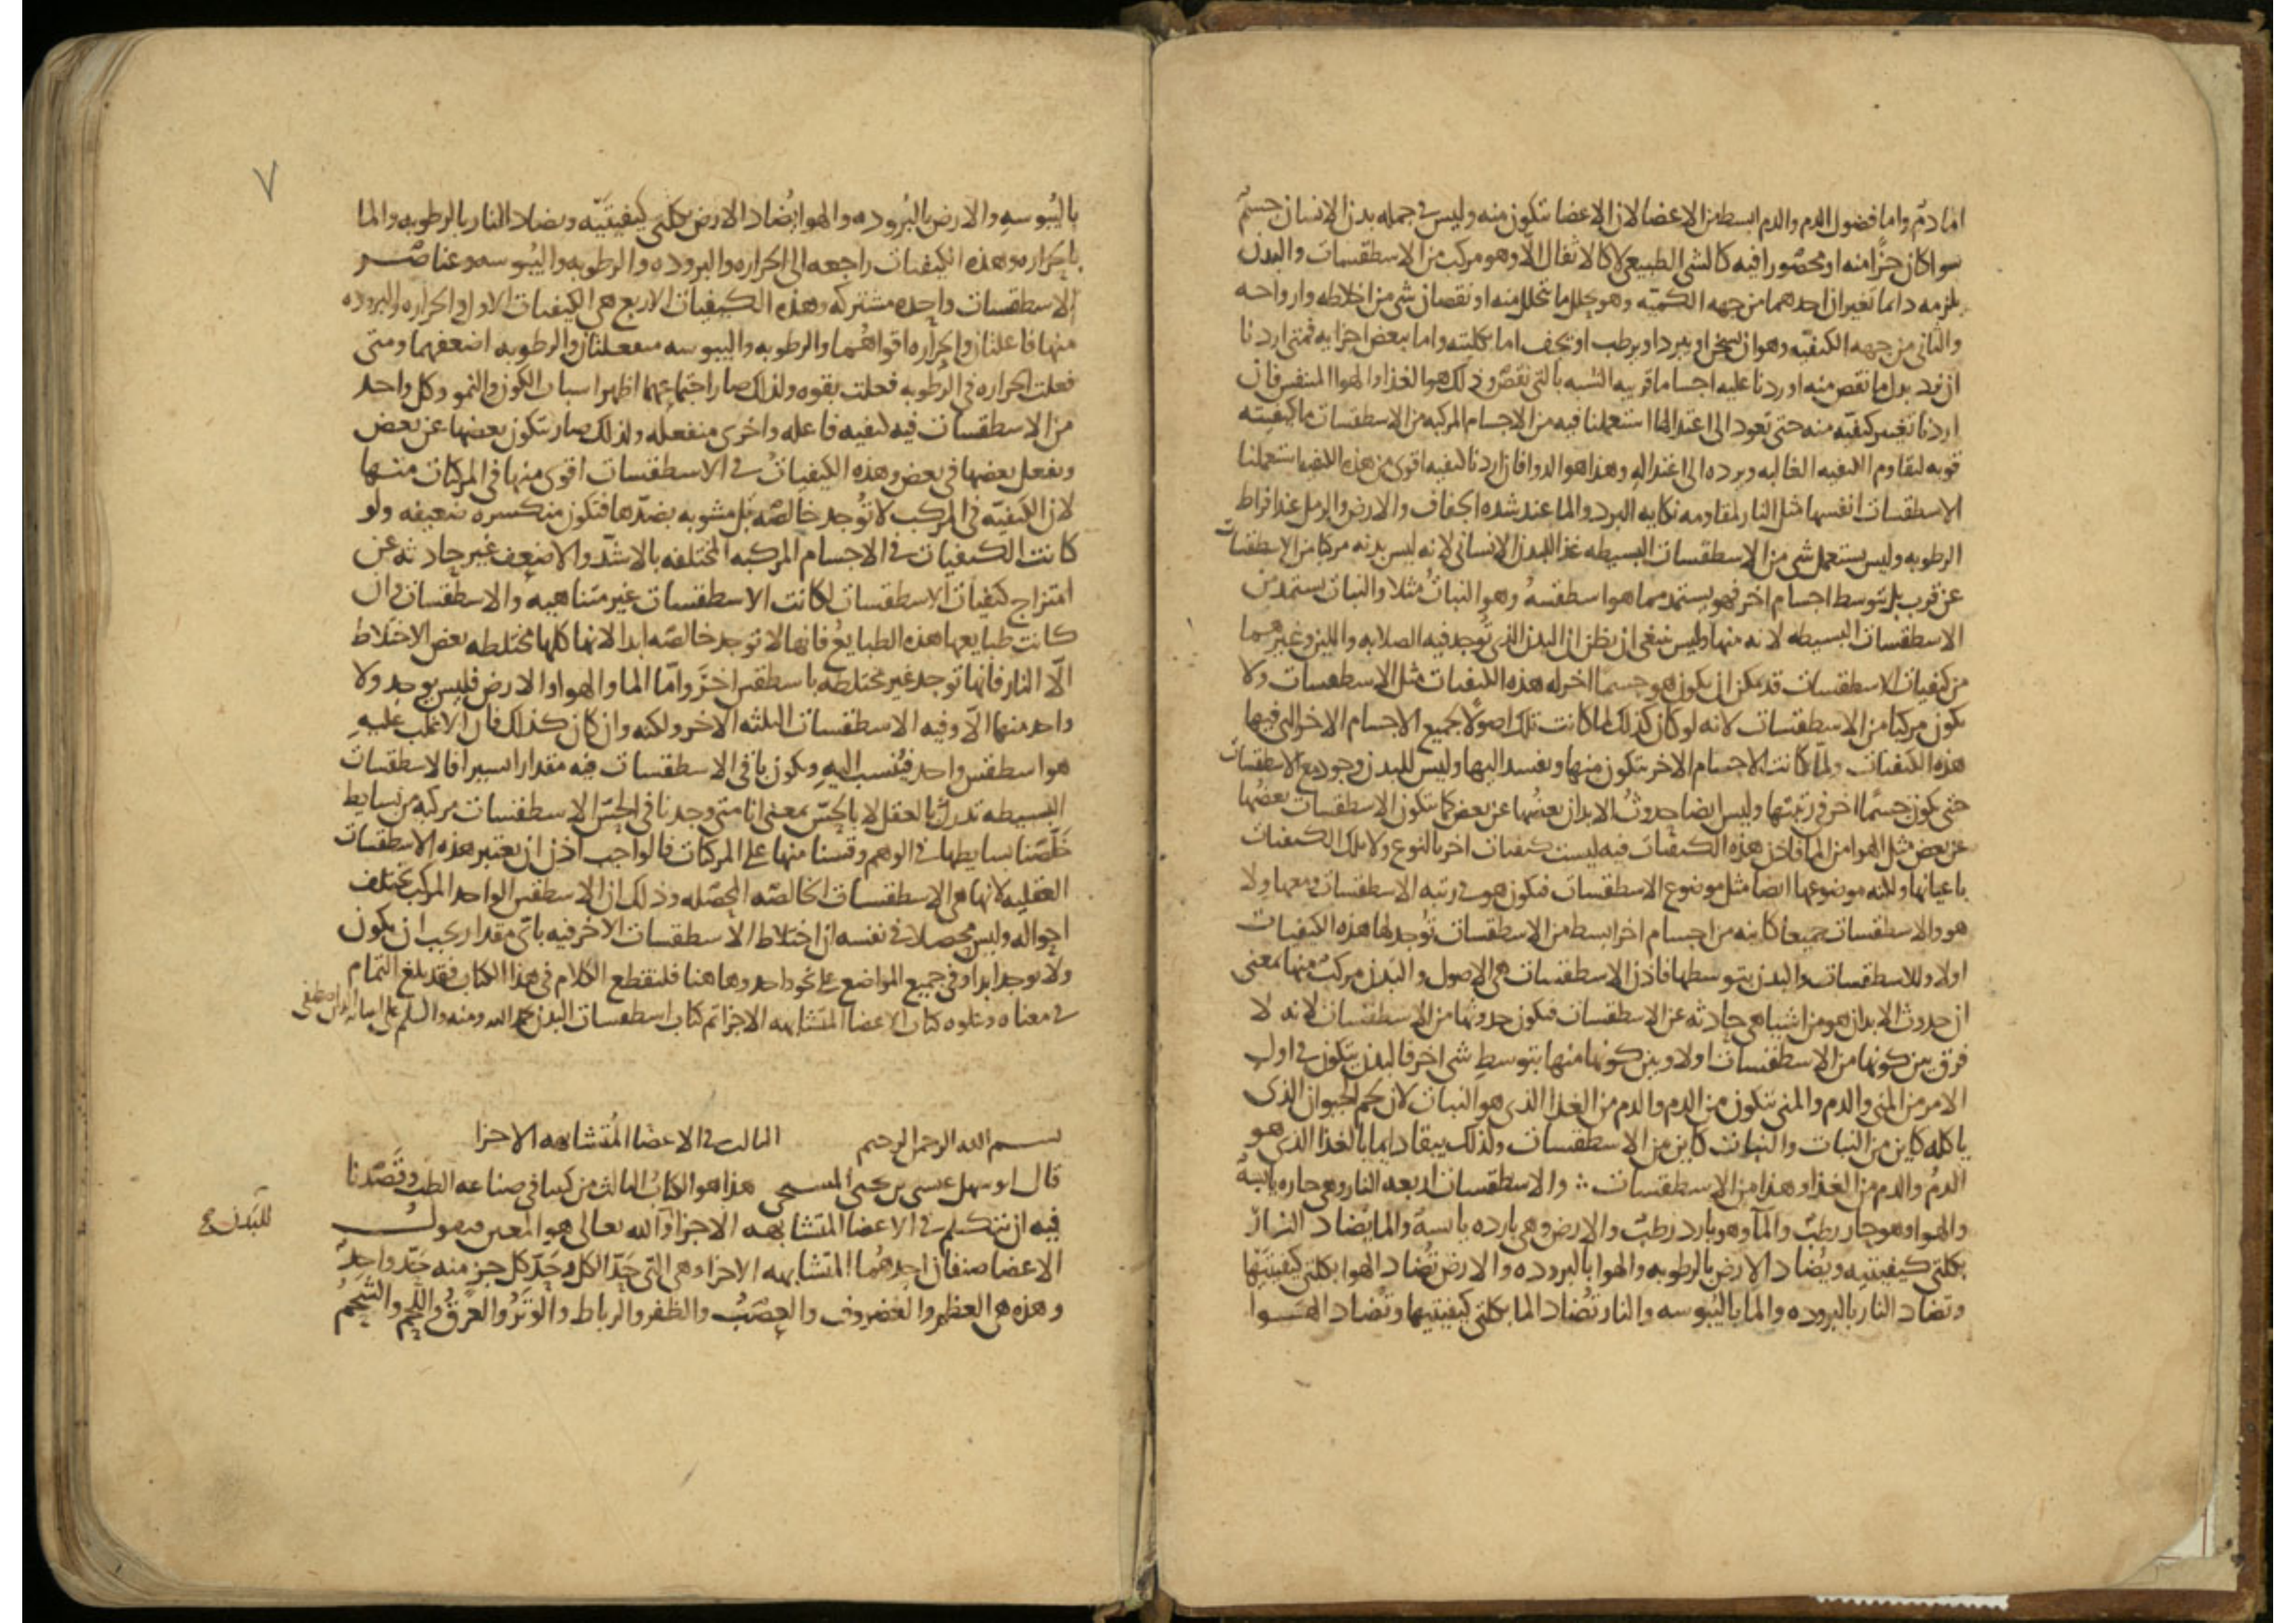 اما دم واما فضول الدم والدم ابسط من الاعضا لان الاعضا تتكون منه وليس في جمله بدن الانسان جسم
سوا كان جزا منه او محصورا فيه كالشي الطبيعي لا كالاثفال الا وهو مركب من الاسطقسات والبدن
يلزمه دايما تغيران احدهما من جهه الكميه وهو تحلل ما يتحلل منه او نقصان شي من اخلاطه وارواحه
والثاني من جهه الكيفيه وهو ان يسخن او يبرد او يرطب او يجف اما بكليته واما ببعض اجزايه فمتى اردنا
ان نرد بدل ما نقص منه اوردنا عليه اجساما قريبه الشبه بالتي نقص وذلك هو الغذا والهوا المتنفس فان
اردنا تغيير كيفيه منه حتى تعود الى اعتدالها استعملنا فيه من الاجسام المركبه من الاسطقسات ما كيفيته
قويه لتقاوم الكيفيه الغالبه ويرده الى اعتداله وهذا هو الدوا فان اردنا كيفيه اقوى من هذه الكيفيا استعملنا
الاسطقسات انفسها مثل النار لمقاومه نكايه البرد والما عند شده الجفاف والارض والرمل عند افراط
الرطوبه وليس يستعمل شي من الاسطقسات البسيطه غذا للبدن الانساني لانه ليس بدنه مركبا من الاسطقسات
عن قرب بل بتوسط اجسام اخر فهو يستمد مما هو اسطقسه وهو النبات مثلا والنبات يستمد من
الاسطقسات البسيطه لانه منها وليس ينبغي ان يظن ان البدن الذي توجد فيه الصلابه واللين وغيرهما
من كيفيات الاسطقسات قد يمكن ان يكون هو جسما اخر له هذه الكيفيات مثل الاسطقسات ولا
يكون مركبا من الاسطقسات لانه لو كان كذلك لما كانت تلك اصولا لجميع الاجسام الاخر التي فيها
هذه الكيفيات ولما كانت الاجسام الاخر تتكون منها وتفسد اليها وليس للبدن وجود مع الاسطقسات
حتى يكون جسما اخر في رتبتها وليس ايضا حدوث الابدان بعضها عن بعض كما تتكون الاسطقسات بعضها
عن بعض مثل الهوا من الما فاذن هذه الكيفيات فيه ليست كيفيات اخر بالنوع ولا تلك الكيفيات
باعيانها ولكنه موضوعها ايضا مثل موضوع الاسطقسات فيكون هو في رتبه الاسطقسات ومعها ولا
هو والاسطقسات جميعا كاينه من اجسام اخر ابسط من الاسطقسات توجد لها هذه الكيفيات
اولا وللاسطقسات والبدن بتوسطها فاذن الاسطقسات هي الاصول والبدن مركب منها بمعنى
ان حدوث الابدان هو من اشيا هي حادثه عن الاسطقسات فيكون حدوثها من الاسطقسات لانه لا
فرق بين كونها من الاسطقسات اولا وبين كونها منها بتوسط شي اخر فالبدن يتكون في اول
الامر من المني والدم والمني يتكون من الدم والدم من الغذا الذي هو النبات لان لحم الحيوان الذي
ياكله كاين من النبات والنبات كاين من الاسطقسات ولذلك يبقا دايما بالغذا الذي هو
الدم والدم من الغذا وهذا من الاسطقسات ∴ والاسطقسات اربعه النار وهي حاره يابسه
والهوا وهو حار رطب والما وهو بارد رطب والارض وهي بارده يابسه والما يضاد النار
بكلتي كيفيتيه ويضاد الارض بالرطوبه والهوا بالبروده والارض تضاد الهوا بكلتي كيفيتيها
وتضاد النار بالبروده والما باليبوسه والنار تضاد الما بكلتي كيفيتيها وتضاد الهوا
٧
باليبوسه والارض بالبروده والهوا يضاد الارض بكلتي كيفيتيه ويضاد النار بالرطوبه والما
بالحراره وهذه الكيفيات راجعه الى الحراره والبروده والرطوبه واليبوسه وعناصر
الاسطقسات واحده مشتركه وهذه الكيفيات الاربع هي الكيفيات الاول والحراره والبروده
منها فاعلتان والحراره اقواهما والرطوبه واليبوسه منفعلتان والرطوبه اضعفهما ومتى
فعلت الحراره في الرطوبه فعلت بقوه ولذلك صار اجتماعهما اظهر اسباب الكون والنمو وكل واحد
من الاسطقسات فيه كيفيه فاعله واخرى منفعله ولذلك صار يتكون بعضها عن بعض
ويفعل بعضها في بعض وهذه الكيفيات في الاسطقسات اقوى منها في المركبات منها
لان الكيفيه في المركب لا توجد خالصه بل مشوبه بضدها فتكون منكسره ضعيفه ولو
كانت الكيفيات في الاجسام المركبه المختلفه بالاشد والاضعف غير حادثه عن
امتزاج كيفيات الاسطقسات لكانت الاسطقسات غير متناهيه والاسطقسات وان
كانت طبايعها هذه الطبايع فانها لا توجد خالصه ابدا لانها كلها مختلطه بعض الاختلاط
الا النار فانها توجد غير مختلطه باسطقس اخر واما الما والهوا والارض فليس يوجد ولا
واحد منها الا وفيه الاسطقسات الثلثه الاخر ولكنه وان كان كذلك فان الاغلب عليه
هو اسطقس واحد فينسب اليه ويكون باقي الاسطقسات فيه مقدارا يسيرا فالاسطقسات
البسيطه تدرك بالعقل لا بالحس بمعنى انا متى وجدنا في الحس الاسطقسات مركبه من بسايط
خلصنا بسايطها في الوهم وقسنا منها على المركبات فالواجب اذن ان يعتبر هذه الاسطقسات
العقليه لانها هي الاسطقسات الخالصه المحصله وذلك ان الاسطقس الواحد المركب تختلف
احواله وليس محصلا في نفسه اذ اختلاط الاسطقسات الاخر فيه باي مقدار يجب ان يكون
ولا يوجد ابدا وفي جميع المواضع على نحو واحد وهاهنا فلنقطع الكلام في هذا الكتاب فقد بلغ التمام
في معناه ويتلوه كتاب الاعضا المتشابهه الاجزا تم كتاب اسطقسات البدن بحمد الله ومنه والسلم على
بسم الله الرحمن الرحيم الثالث في الاعضا المتشابهه الاجزا
قال ابو سهل عيسى بن يحيى المسيحي هذا هو الكتاب الثالث من كتبنا في صناعه الطب وقصدنا
فيه ان نتكلم في الاعضا المتشابهه الاجزا والله تعالى هو المعين فنقول
الاعضا صنفان احدهما المتشابهه الاجزا وهي التي حد الكل وحد كل جز منه حد واحد
وهذه هي العظم والغضروف والعصب والظفر والرباط والوتر والعرق واللحم والشحم